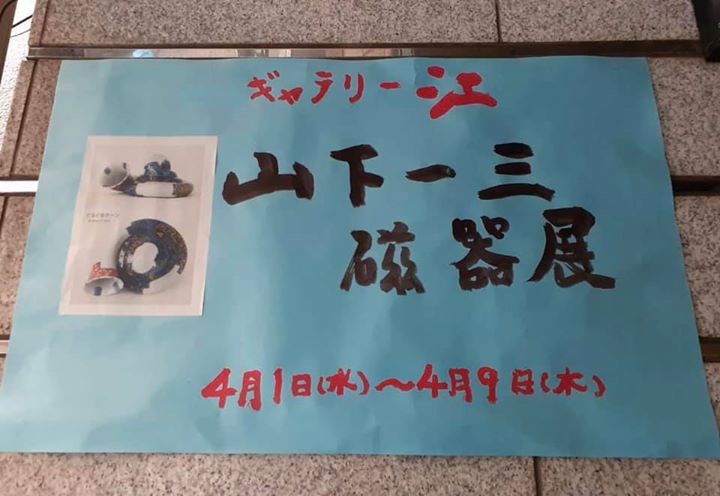 ギャラリー江
山下一三
磁器展
4月1日(水)～4月9日(木)